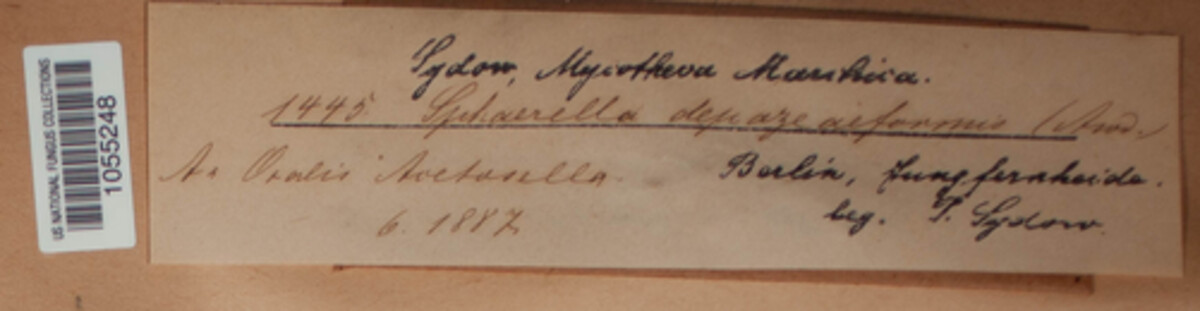 US NATIONAL FUNGUS COLLECTIONS
1055248
Sydow, Mycotheca Marchica.
1445 Sphaerella depazeaeformis (Awd.)
An Oxalis Acetosella. Berlin, Jungfernheide.
6. 1887 leg. P. Sydow.